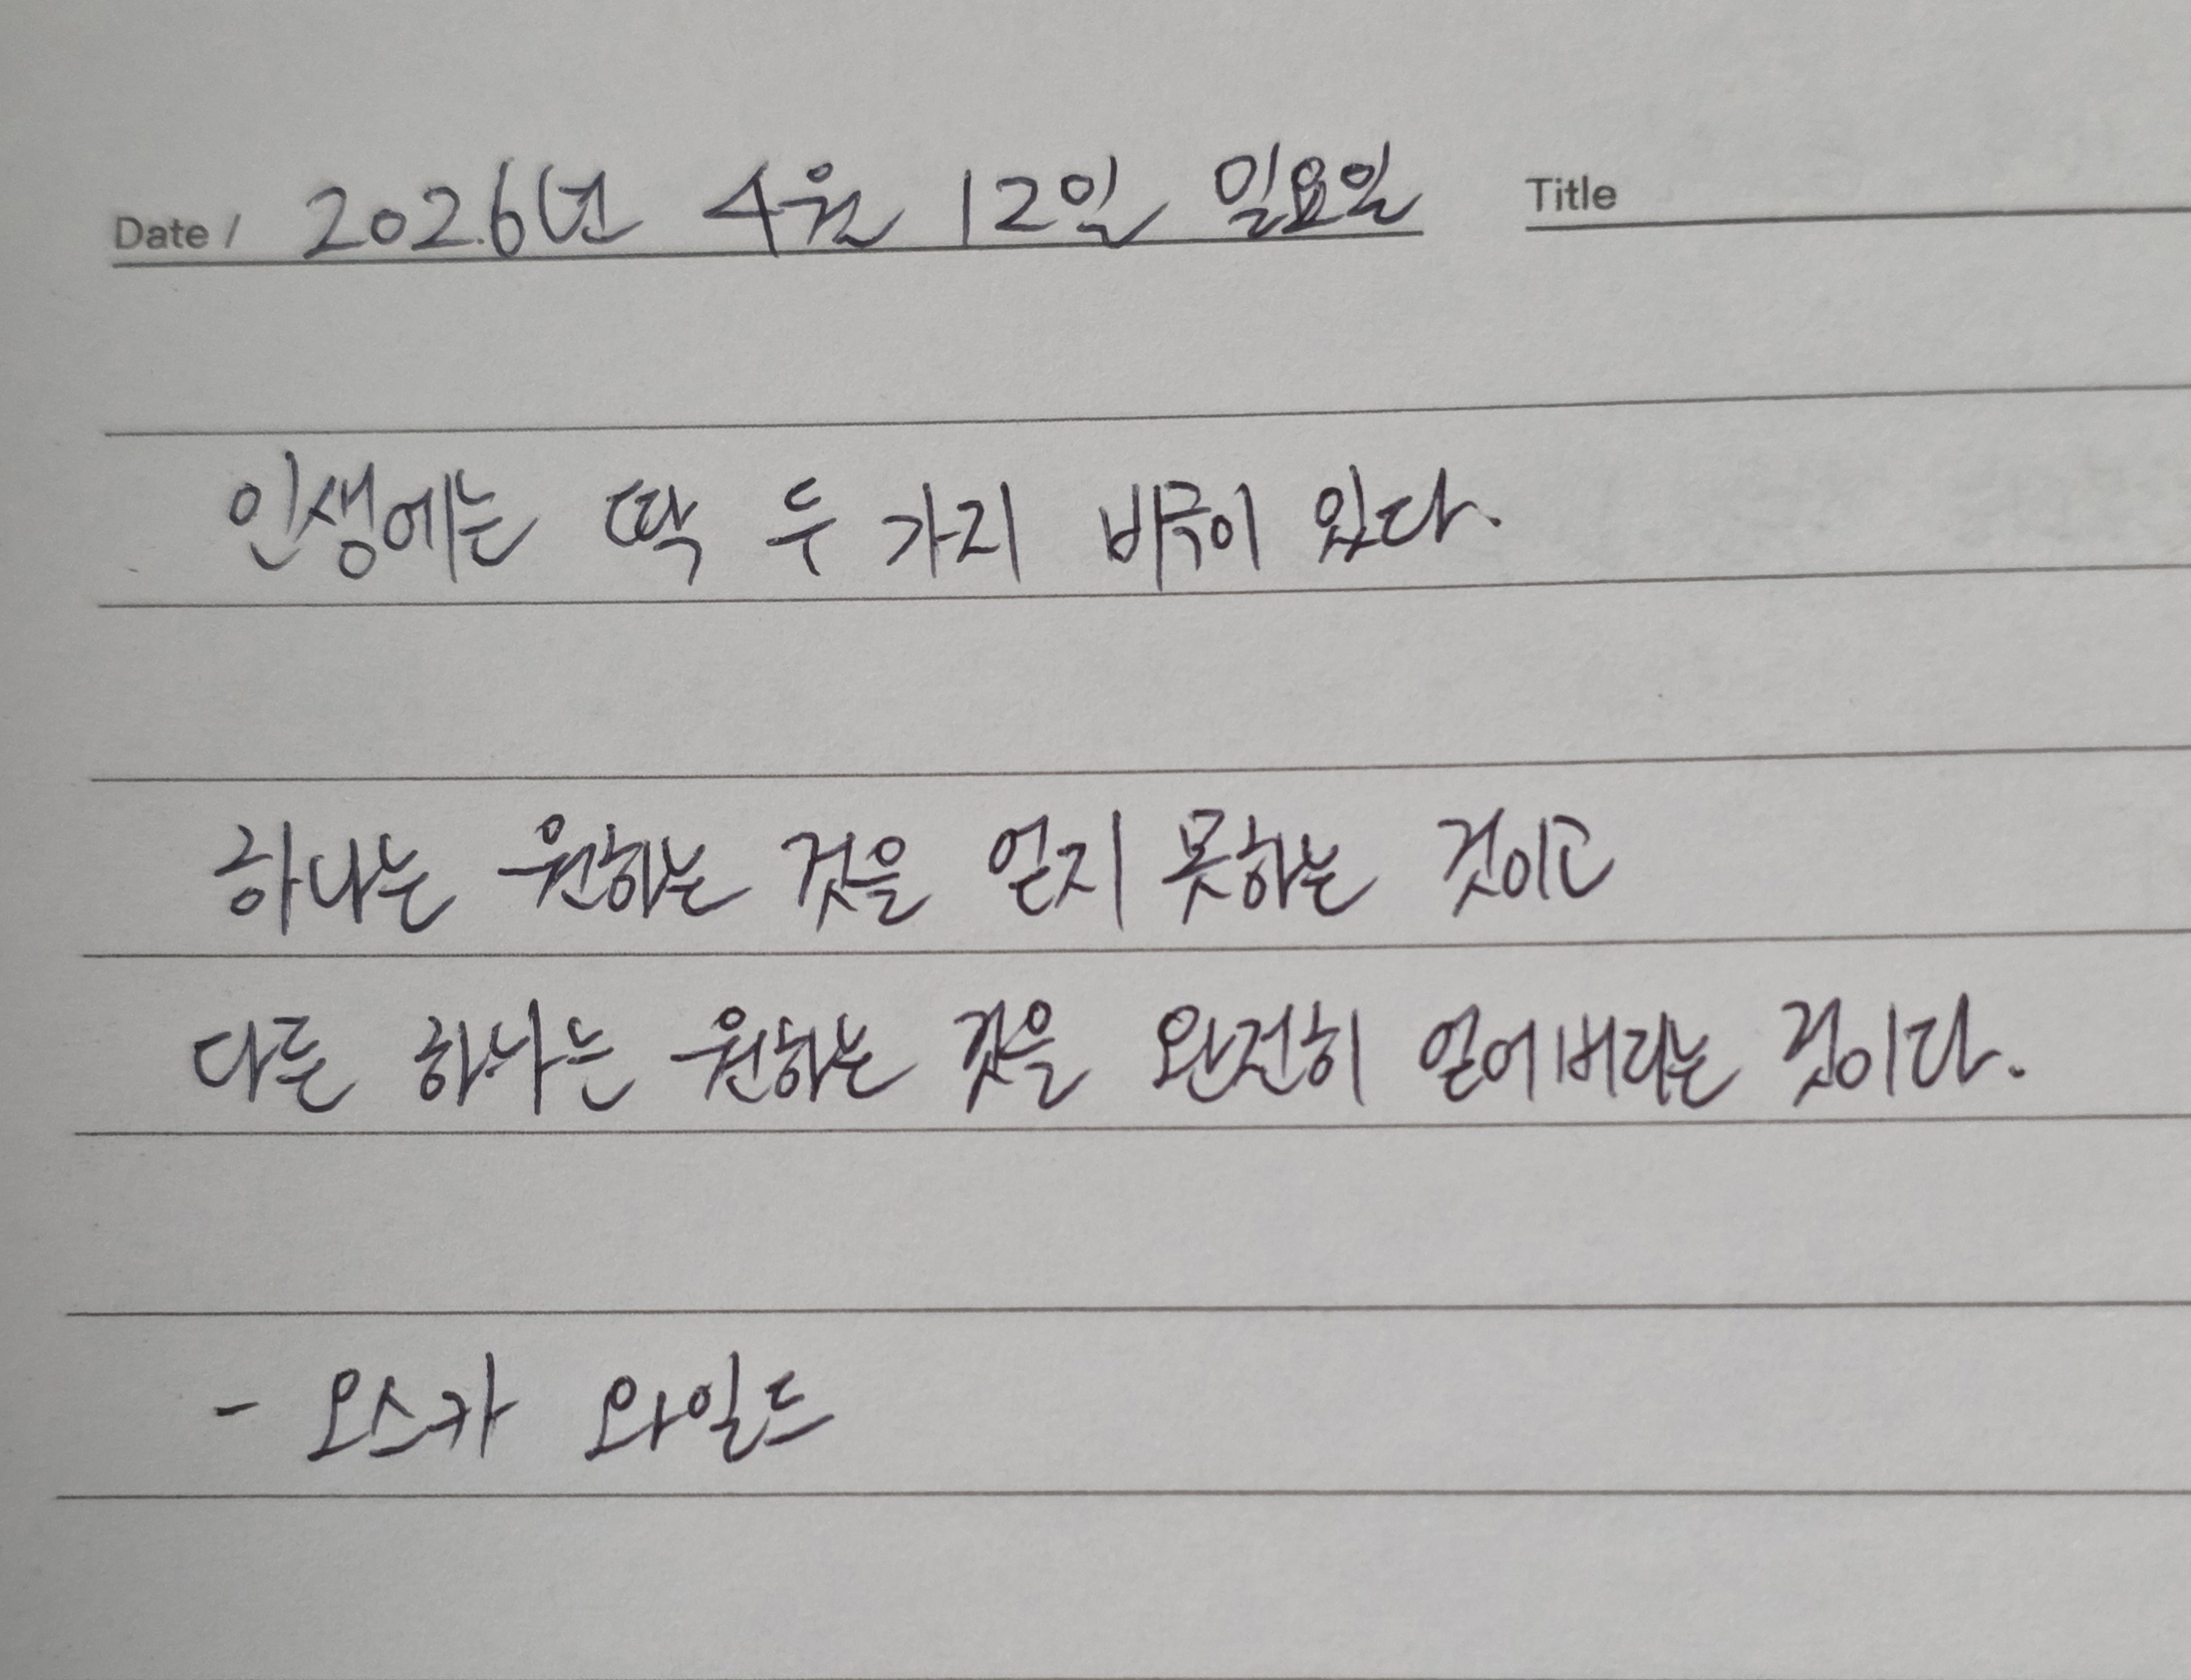 Date / 2026년 4월 12일 일요일 Title
인생에는 딱 두 가지 비극이 있다.
하나는 원하는 것을 얻지 못하는 것이고
다른 하나는 원하는 것을 완전히 얻어버리는 것이다.
- 오스카 와일드